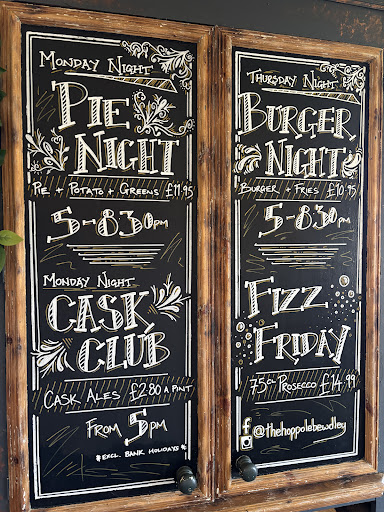 Monday Night
PIE
NIGHT
PIE + POTATO + GREENS £11.95
5-8.30pm
Monday Night
CASK
CLUB
CASK ALES £2.80 A PINT
FROM 5pm
*EXCL. BANK HOLIDAYS*
Thursday Night
BURGER
NIGHT
BURGER + FRIES £10.95
5-8.30pm
FIZZ
FRIDAY
75CL PROSECCO £14.99
@thehoppolebewdley